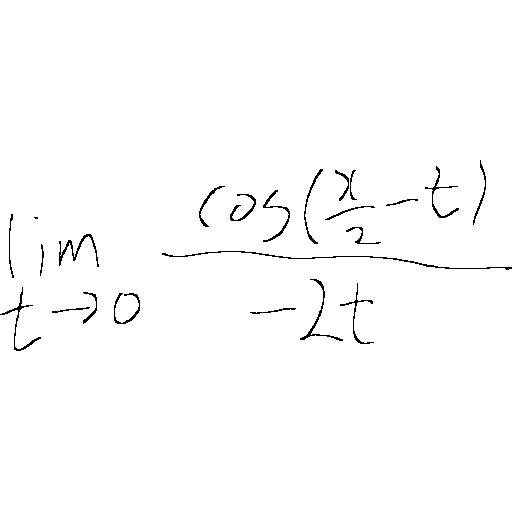 \lim_{t \to 0} \frac{\cos(\frac{x}{2} - t)}{-2t}